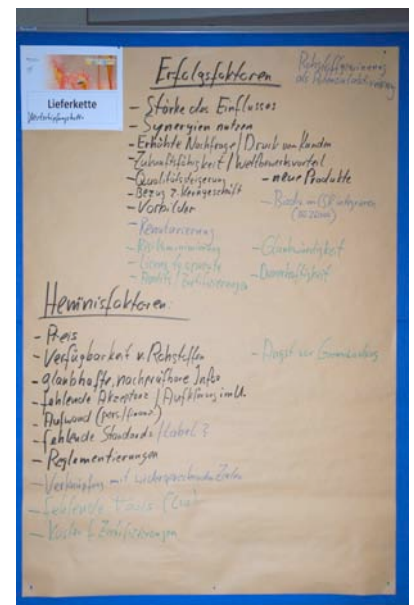 Lieferkette
Wertschöpfungskette
Erfolgsfaktoren
Rohstoffgewinnung
als
- Stärke des Einflusses
- Synergien nutzen
- Erhöhte Nachfrage / Druck von Kunden
- Zukunftsfähigkeit / Wettbewerbsvorteil
- Qualitätssteigerung
- neue Produkte
- Bezug z. Kerngeschäft
- Vorbilder
- in CSR integrieren
- Risikominimierung
- Glaubwürdigkeit
- License to operate
- Dauerhaftigkeit
- Audits / Zertifizierungen
Hemmnisfaktoren:
- Preis
- Verfügbarkeit v. Rohstoffen
- Angst vor
- glaubhafte, nachprüfbare Infos
- fehlende Akzeptanz / Aufklärung
- Aufwand (pers./finanz.)
- fehlende Standards / Label ?
- Reglementierungen
- Verknüpfung mit widersprechenden Zielen
- Fehlende Tools
- Kosten f. Zertifizierungen